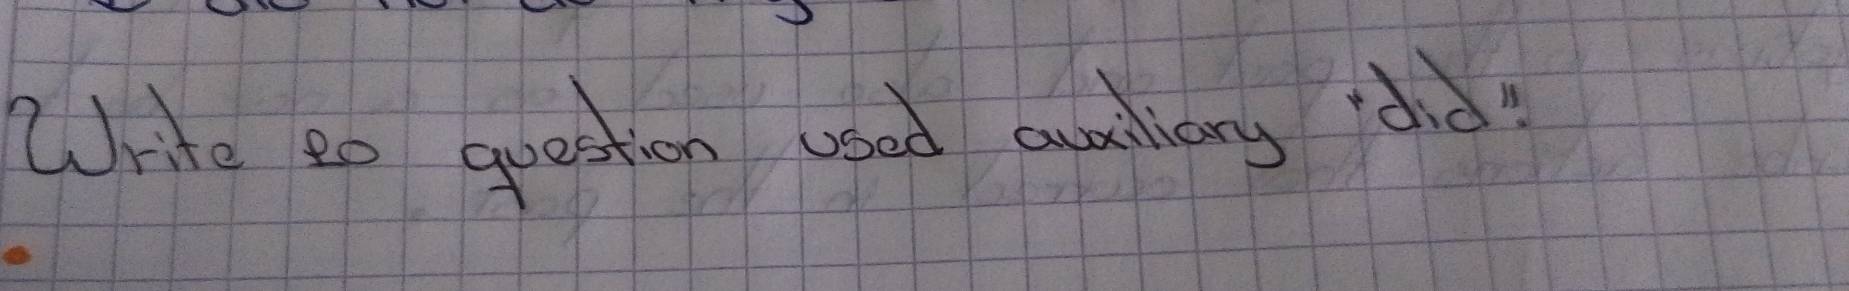 Write 20 question used auxiliary "did".